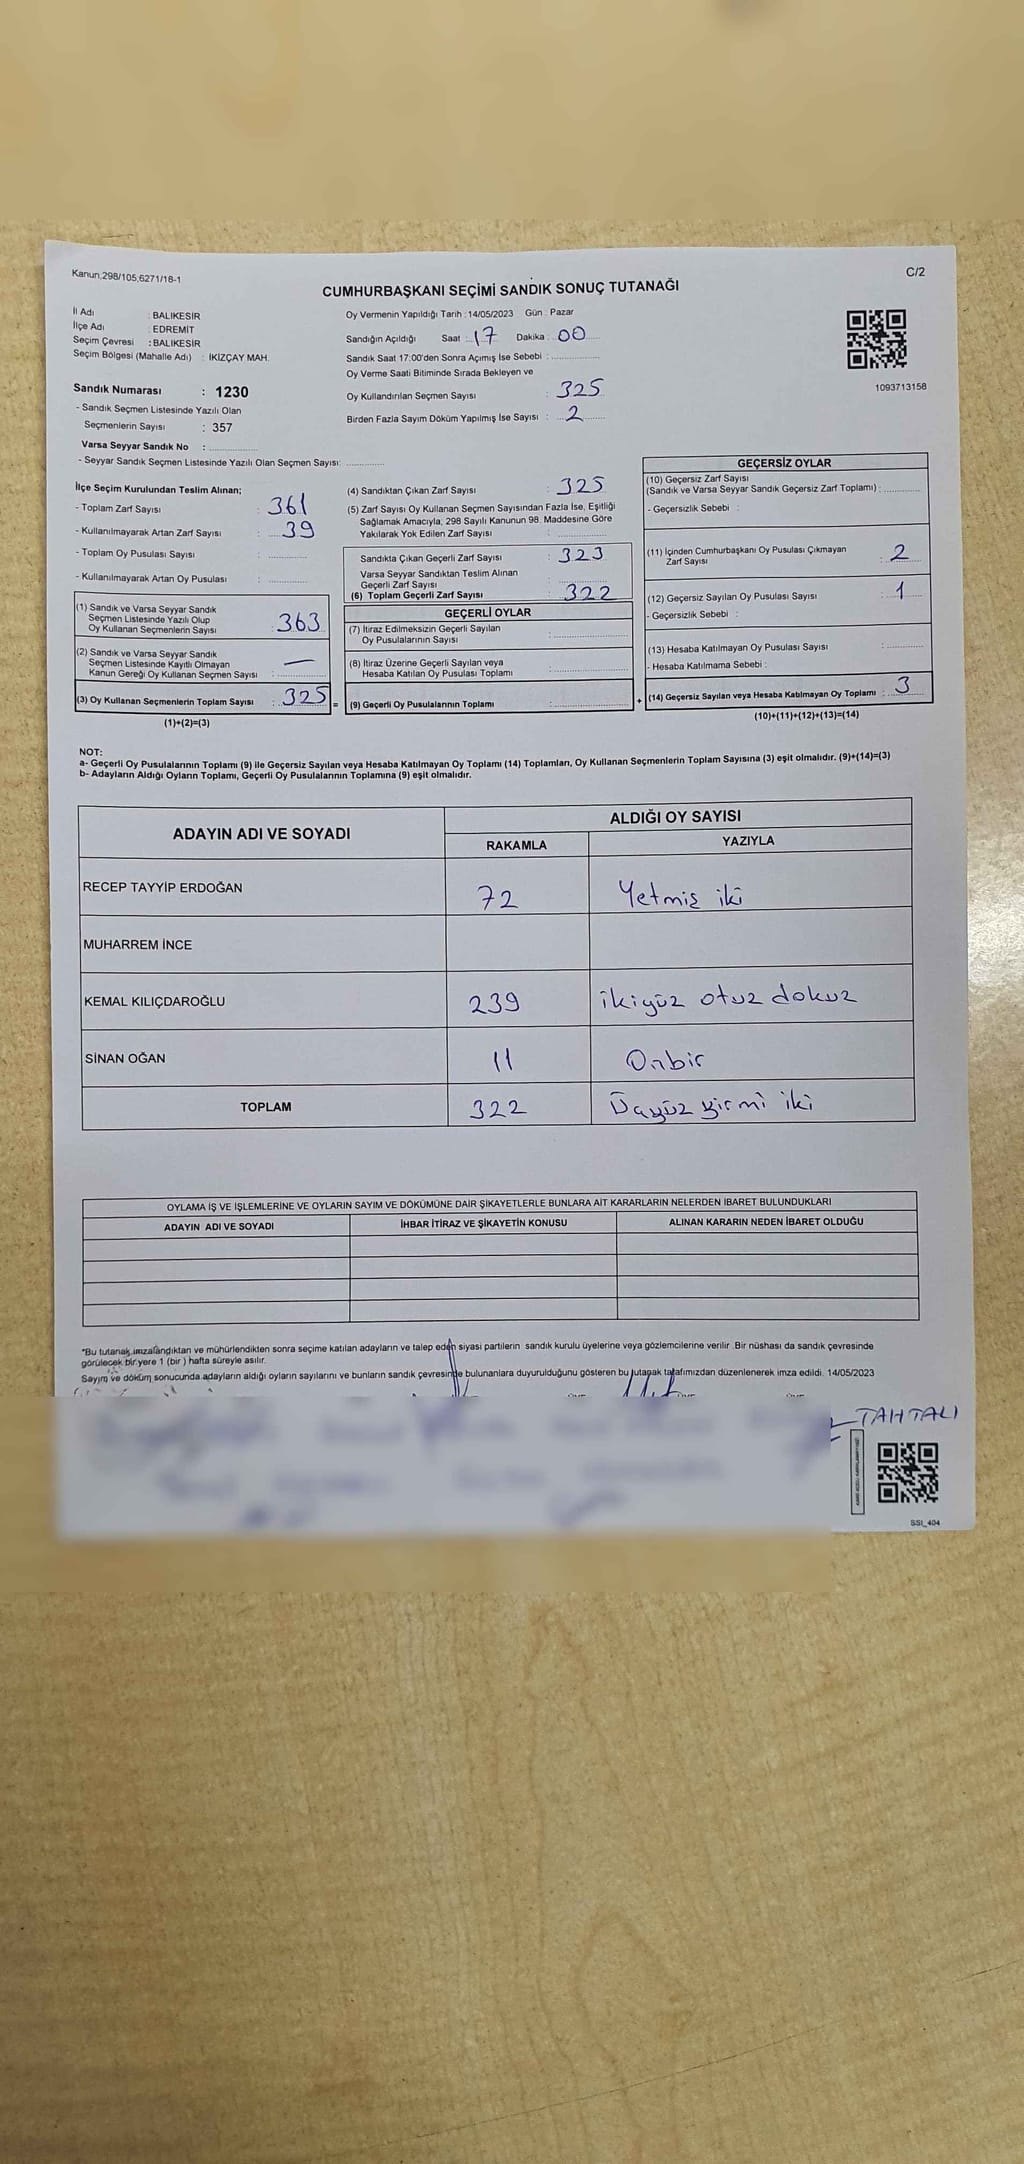 Kanun,298/105,6271/18-1
C/2
CUMHURBAŞKANI SEÇİMİ SANDIK SONUÇ TUTANAĞI
İl Adı : BALIKESİR
İlçe Adı : EDREMİT
Seçim Çevresi : BALIKESİR
Seçim Bölgesi (Mahalle Adı) : İKİZÇAY MAH.
Sandık Numarası : 1230
- Sandık Seçmen Listesinde Yazılı Olan
Seçmenlerin Sayısı : 357
Varsa Seyyar Sandık No :
- Seyyar Sandık Seçmen Listesinde Yazılı Olan Seçmen Sayısı:
Oy Vermenin Yapıldığı Tarih : 14/05/2023 Gün : Pazar
Sandığın Açıldığı Saat : 17 Dakika : 00
Sandık Saat 17:00'den Sonra Açımış İse Sebebi :
Oy Verme Saati Bitiminde Sırada Bekleyen ve
Oy Kullandırılan Seçmen Sayısı : 325
Birden Fazla Sayım Döküm Yapılmış İse Sayısı : 2
1093713158
İlçe Seçim Kurulundan Teslim Alınan;
- Toplam Zarf Sayısı : 361
- Kullanılmayarak Artan Zarf Sayısı : 39
- Toplam Oy Pusulası Sayısı :
- Kullanılmayarak Artan Oy Pusulası :
(1) Sandık ve Varsa Seyyar Sandık
Seçmen Listesinde Yazılı Olup
Oy Kullanan Seçmenlerin Sayısı : 363
(2) Sandık ve Varsa Seyyar Sandık
Seçmen Listesinde Kayıtlı Olmayan
Kanun Gereği Oy Kullanan Seçmen Sayısı : —
(3) Oy Kullanan Seçmenlerin Toplam Sayısı : 325 =
(1)+(2)=(3)
(4) Sandıktan Çıkan Zarf Sayısı : 325
(5) Zarf Sayısı Oy Kullanan Seçmen Sayısından Fazla İse, Eşitliği
Sağlamak Amacıyla, 298 Sayılı Kanunun 98. Maddesine Göre
Yakılarak Yok Edilen Zarf Sayısı :
Sandıkta Çıkan Geçerli Zarf Sayısı : 323
Varsa Seyyar Sandıktan Teslim Alınan
Geçerli Zarf Sayısı :
(6) Toplam Geçerli Zarf Sayısı : 322
GEÇERLİ OYLAR
(7) İtiraz Edilmeksizin Geçerli Sayılan
Oy Pusulalarının Sayısı :
(8) İtiraz Üzerine Geçerli Sayılan veya
Hesaba Katılan Oy Pusulası Toplamı :
(9) Geçerli Oy Pusulalarının Toplamı : +
GEÇERSİZ OYLAR
(10) Geçersiz Zarf Sayısı
(Sandık ve Varsa Seyyar Sandık Geçersiz Zarf Toplamı) :
- Geçersizlik Sebebi :
(11) İçinden Cumhurbaşkanı Oy Pusulası Çıkmayan
Zarf Sayısı : 2
(12) Geçersiz Sayılan Oy Pusulası Sayısı : 1
- Geçersizlik Sebebi :
(13) Hesaba Katılmayan Oy Pusulası Sayısı :
- Hesaba Katılmama Sebebi :
(14) Geçersiz Sayılan veya Hesaba Katılmayan Oy Toplamı : 3
(10)+(11)+(12)+(13)=(14)
NOT:
a- Geçerli Oy Pusulalarının Toplamı (9) ile Geçersiz Sayılan veya Hesaba Katılmayan Oy Toplamı (14) Toplamları, Oy Kullanan Seçmenlerin Toplam Sayısına (3) eşit olmalıdır. (9)+(14)=(3)
b- Adayların Aldığı Oyların Toplamı, Geçerli Oy Pusulalarının Toplamına (9) eşit olmalıdır.
ADAYIN ADI VE SOYADI
ALDIĞI OY SAYISI
RAKAMLA YAZIYLA
RECEP TAYYİP ERDOĞAN 72 Yetmiş iki
MUHARREM İNCE
KEMAL KILIÇDAROĞLU 239 ikiyüz otuz dokuz
SİNAN OĞAN 11 Onbir
TOPLAM 322 Üçyüz yirmi iki
OYLAMA İŞ VE İŞLEMLERİNE VE OYLARIN SAYIM VE DÖKÜMÜNE DAİR ŞİKAYETLERLE BUNLARA AİT KARARLARIN NELERDEN İBARET BULUNDUKLARI
ADAYIN ADI VE SOYADI İHBAR İTİRAZ VE ŞİKAYETİN KONUSU ALINAN KARARIN NEDEN İBARET OLDUĞU
*Bu tutanak imzalandıktan ve mühürlendikten sonra seçime katılan adayların ve talep eden siyasi partilerin sandık kurulu üyelerine veya gözlemcilerine verilir .Bir nüshası da sandık çevresinde
görülecek bir yere 1 (bir ) hafta süreyle asılır.
Sayım ve döküm sonucunda adayların aldığı oyların sayılarını ve bunların sandık çevresinde bulunanlara duyurulduğunu gösteren bu tutanak tarafımızdan düzenlenerek imza edildi. 14/05/2023
TAHTALI
SSI_404